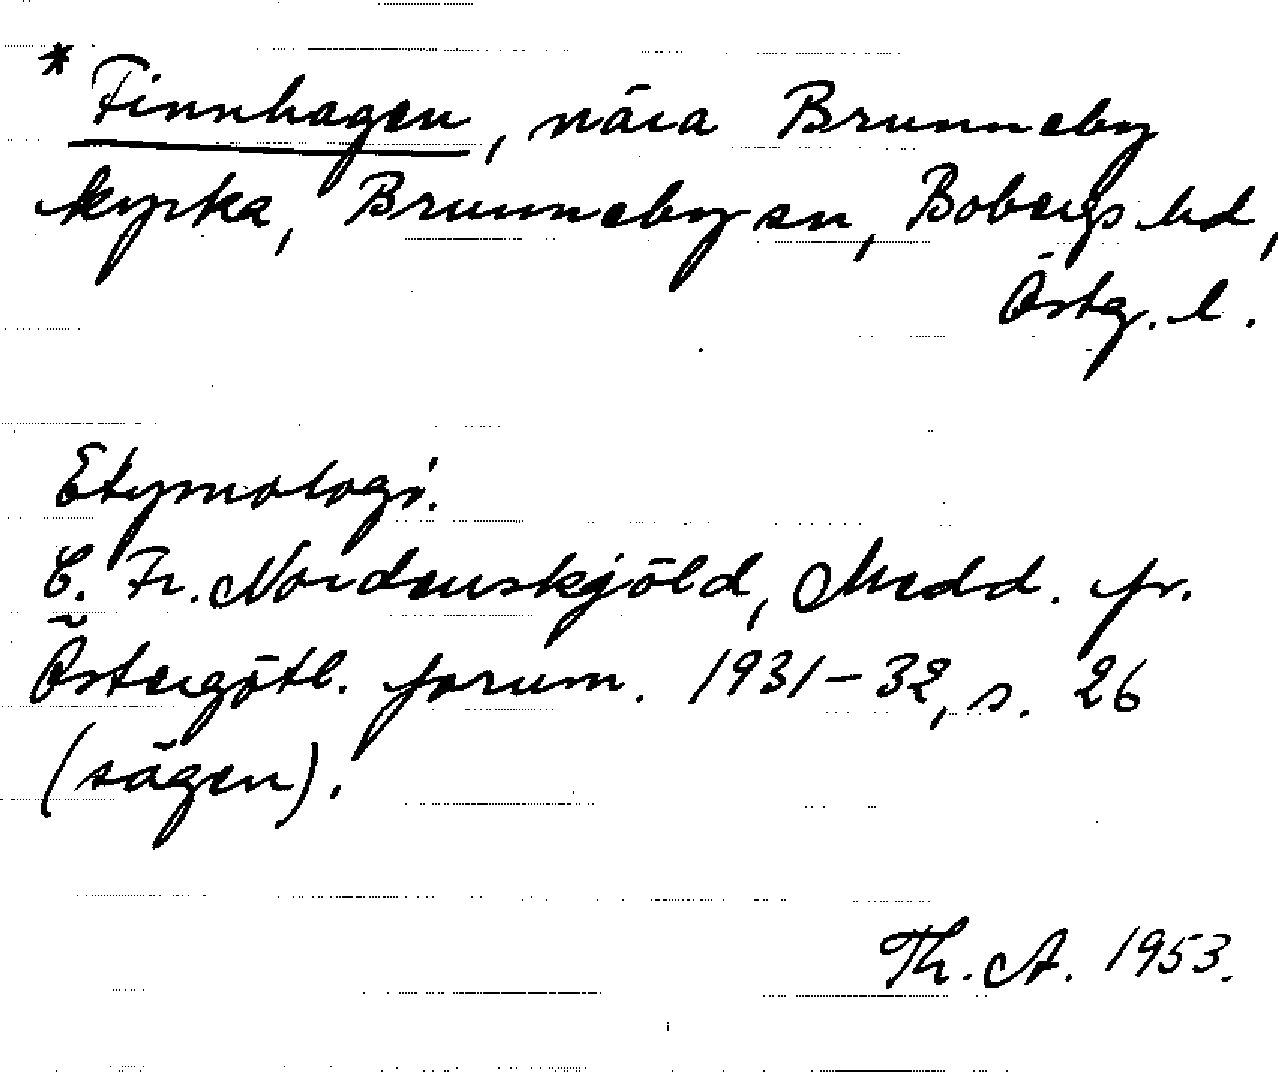 * Finnhagen, nära Brunneby
kyrka, Brunneby sn, Bobergs hd,
Östg. l.
Etymologi.
C. Fr. Nordenskjöld, Medd. fr.
Östergötl. fornm. 1931-32, s. 26
(sägen).
Th. A. 1953.